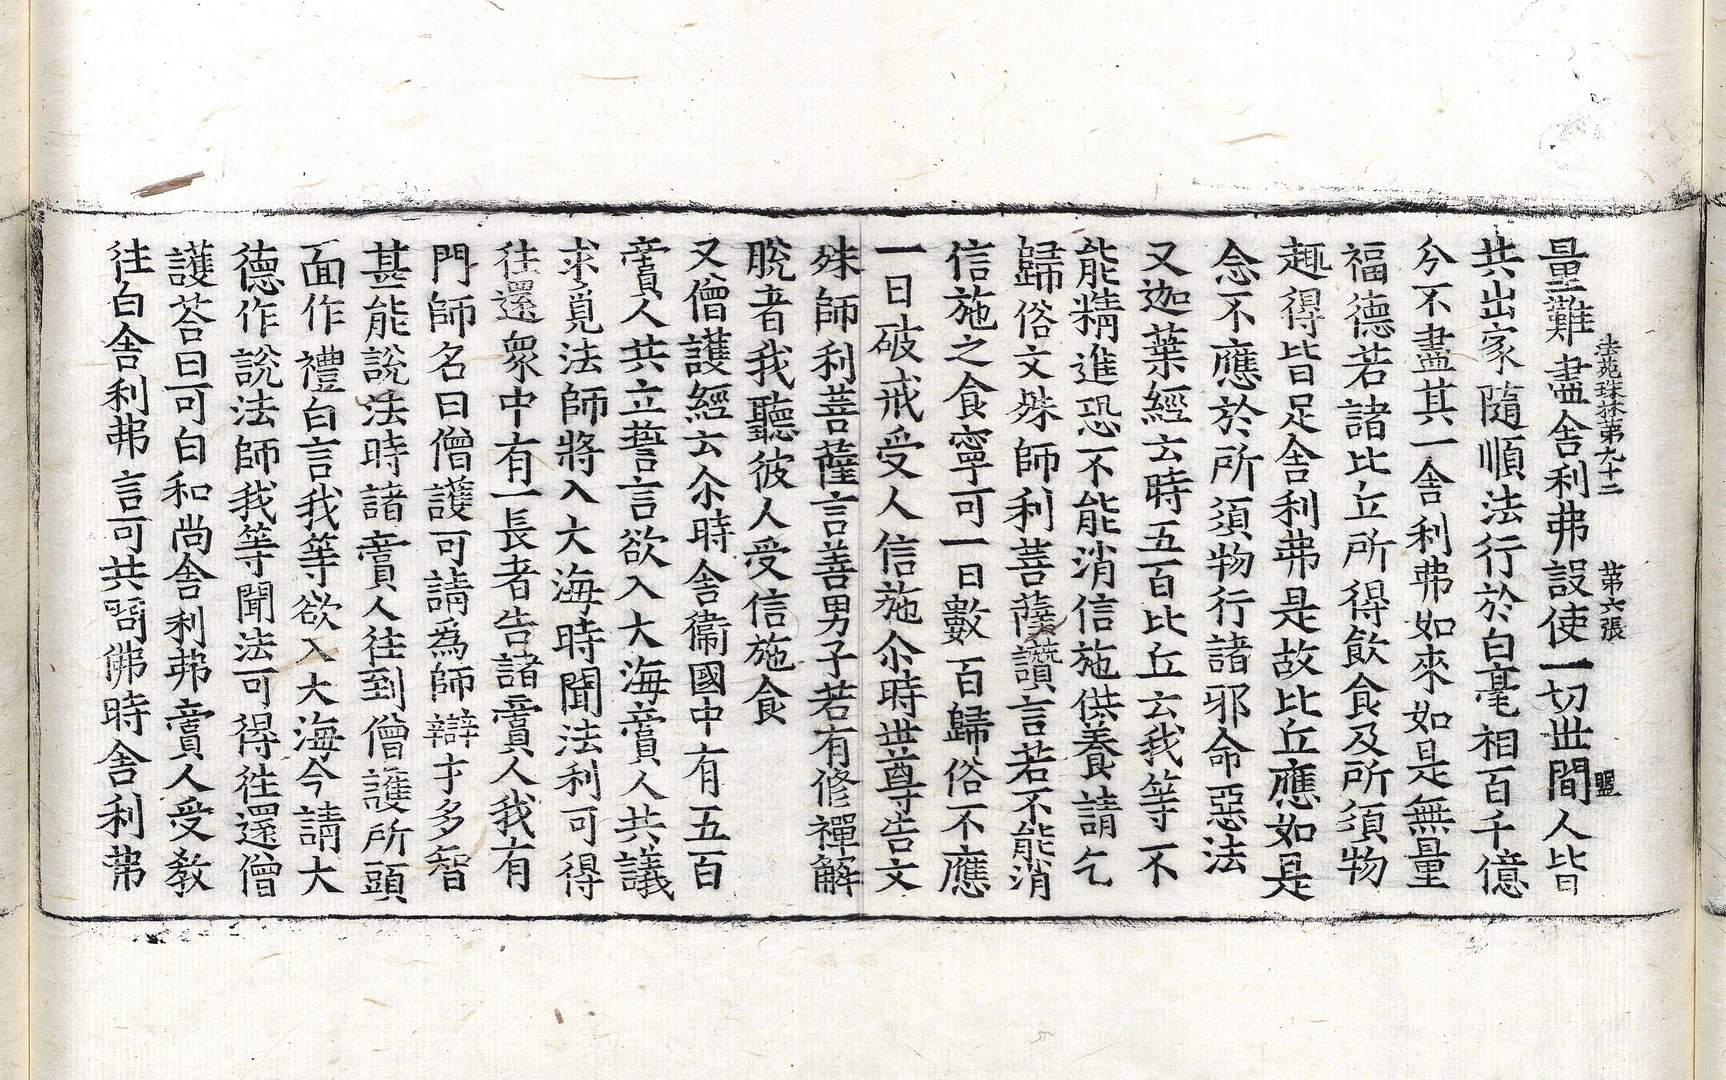 法苑珠林第九十二 第六張 盟
量難盡舍利弗設使一切世間人皆
共出家隨順法行於白毫相百千億
分不盡其一舍利弗如來如是無量
福德若諸比丘所得飲食及所須物
趣得皆足舍利弗是故比丘應如是
念不應於所須物行諸邪命惡法
又迦葉經云時五百比丘云我等不
能精進恐不能消信施供養請乞
歸俗文殊師利菩薩讚言若不能消
信施之食寧可一日數百歸俗不應
一日破戒受人信施尒時世尊告文
殊師利菩薩言善男子若有修禪解
脫者我聽彼人受信施食
又僧護經云尒時舍衞國中有五百
賣人共立誓言欲入大海賣人共議
求覓法師將入大海時聞法利可得
往還衆中有一長者告諸賣人我有
門師名曰僧護可請爲師辯才多智
甚能說法時諸賣人往到僧護所頭
面作禮白言我等欲入大海今請大
德作說法師我等聞法可得往還僧
護荅曰可白和尚舍利弗賣人受教
往白舍利弗言可共問佛時舍利弗